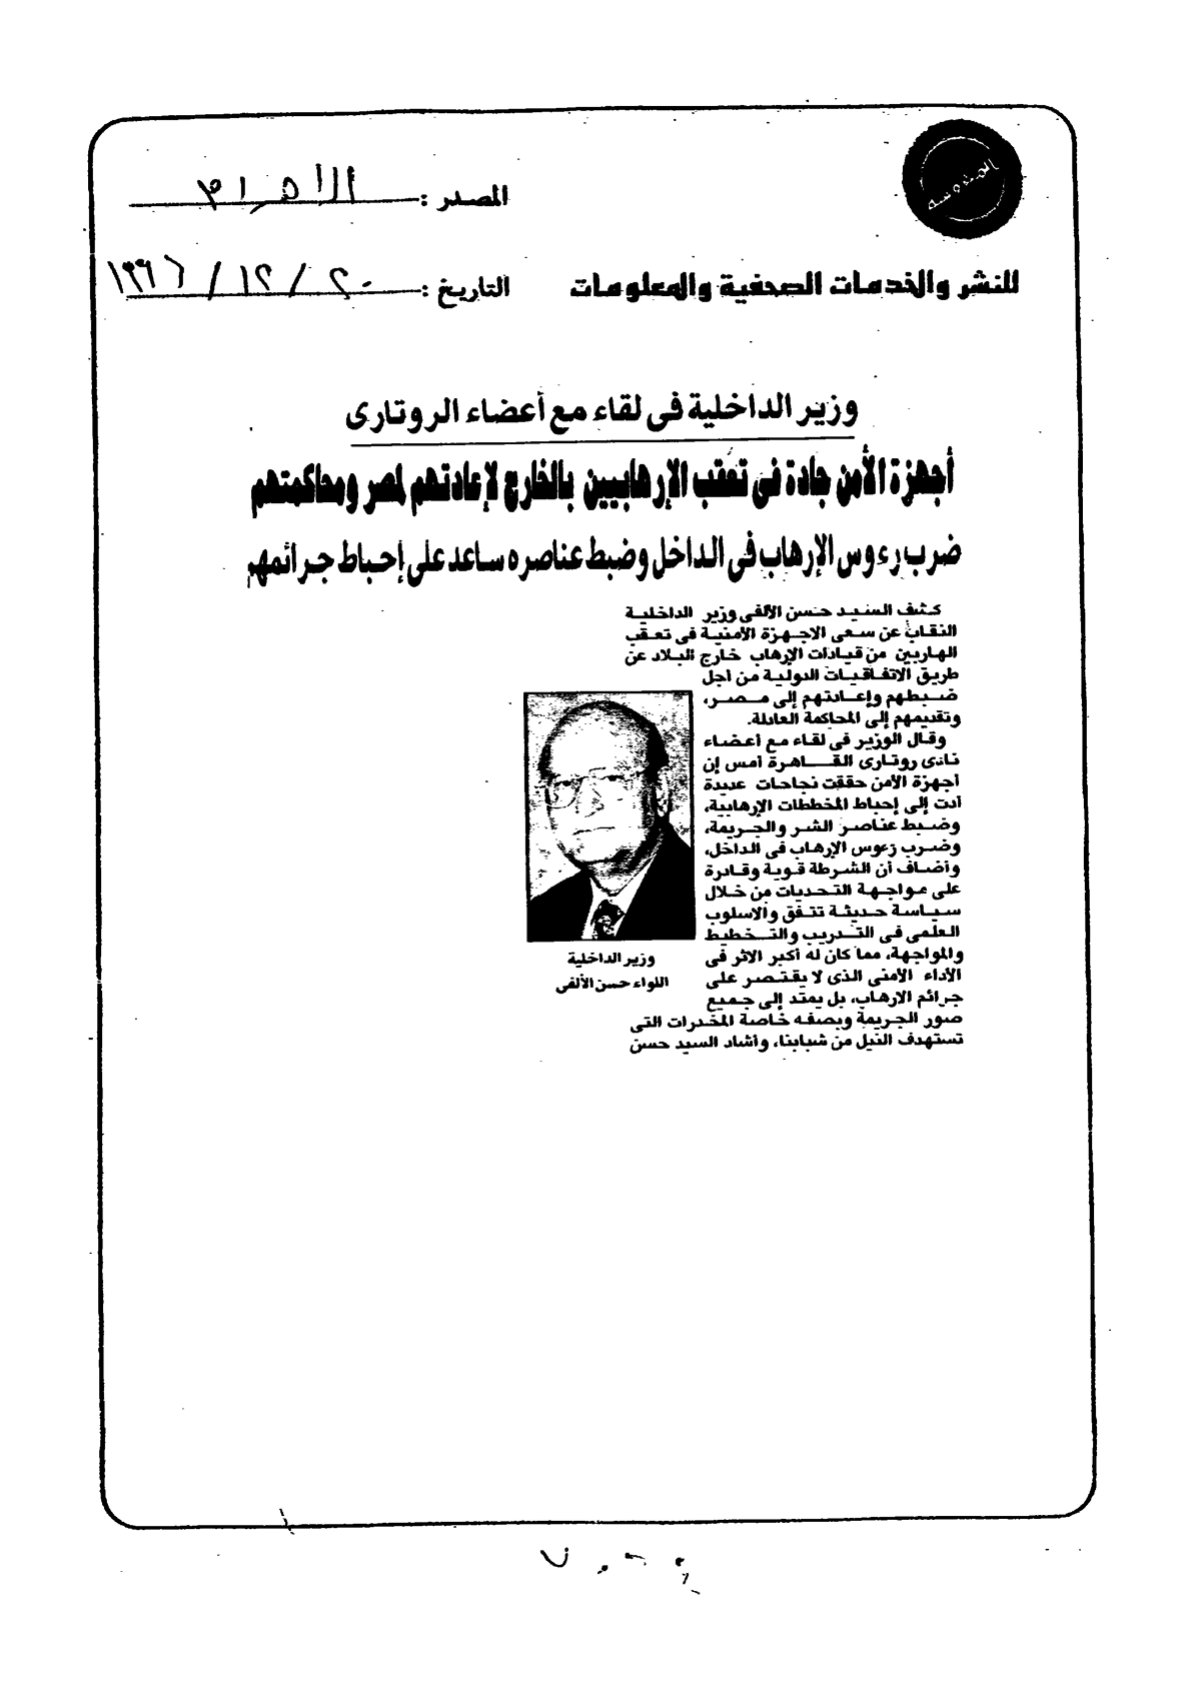 المحروسة
المصدر : الأهرام
للنشر والخدمات الصحفية والمعلومات
التاريخ : ٢٠ / ١٢ / ١٩٩٦
وزير الداخلية فى لقاء مع أعضاء الروتارى
أجهزة الأمن جادة فى تعقب الإرهابيين بالخارج لإعادتهم لمصر ومحاكمتهم
ضرب رءوس الإرهاب فى الداخل وضبط عناصره ساعد على إحباط جرائمهم
كشف السيد حسن الألفى وزير الداخلية
النقاب عن سعى الاجهزة الأمنية فى تعقب
الهاربين من قيادات الإرهاب خارج البلاد عن
طريق الاتفاقيات الدولية من أجل
ضبطهم وإعادتهم إلى مصر،
وتقديمهم إلى المحاكمة العادلة.
وقال الوزير فى لقاء مع أعضاء
نادى روتارى القاهرة أمس إن
أجهزة الأمن حققت نجاحات عديدة
أدت إلى إحباط المخططات الإرهابية،
وضبط عناصر الشر والجريمة،
وضرب رءوس الإرهاب فى الداخل،
وأضاف أن الشرطة قوية وقادرة
على مواجهة التحديات من خلال
سياسة حديثة تتفق والاسلوب
العلمى فى التدريب والتخطيط
والمواجهة، مما كان له أكبر الاثر فى
الأداء الأمنى الذى لا يقتصر على
جرائم الارهاب، بل يمتد إلى جميع
صور الجريمة وبصفه خاصة المخدرات التى
تستهدف النيل من شبابنا، وأشاد السيد حسن
وزير الداخلية
اللواء حسن الألفى